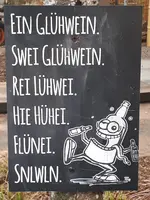 EIN GLÜHWEIN.
SWEI GLÜHWEIN.
REI LÜHWEI.
HIE HÜHEI.
FLÜNEI.
SNLWLN.